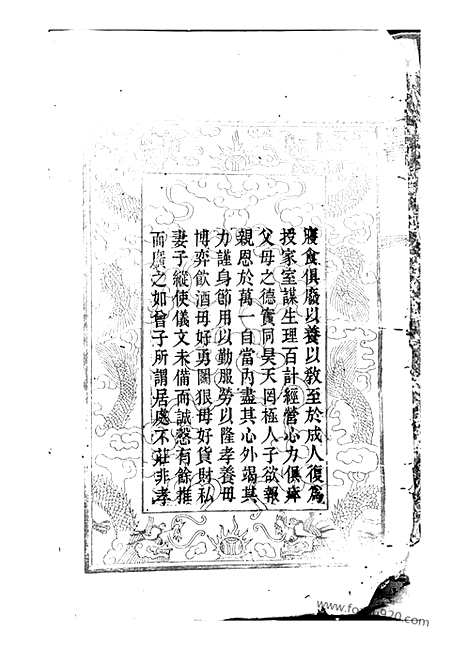 寢食俱廢以養以敎至於成人復爲
授家室謀生理百計經營心力俱瘁
父母之德實同昊天罔極人子欲報
親恩於萬一自當內盡其心外竭其
力謹身節用以勤服勞以隆孝養毋
博弈飮酒毋好勇鬭狠毋好貨財私
妻子縱使儀文未備而誠慤有餘推
而廣之如曾子所謂居處不莊非孝